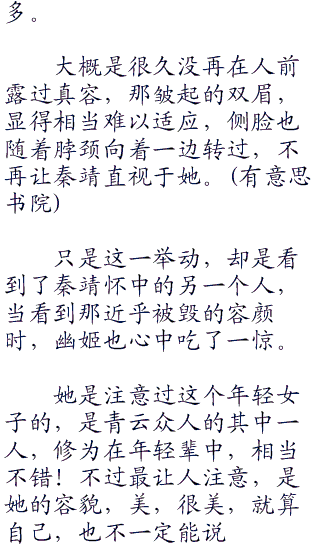 多。
大概是很久没再在人前
露过真容，那皱起的双眉，
显得相当难以适应，侧脸也
随着脖颈向着一边转过，不
再让秦靖直视于她。(有意思
书院)
只是这一举动，却是看
到了秦靖怀中的另一个人，
当看到那近乎被毁的容颜
时，幽姬也心中吃了一惊。
她是注意过这个年轻女
子的，是青云众人的其中一
人，修为在年轻辈中，相当
不错！不过最让人注意，是
她的容貌，美，很美，就算
自己，也不一定能说